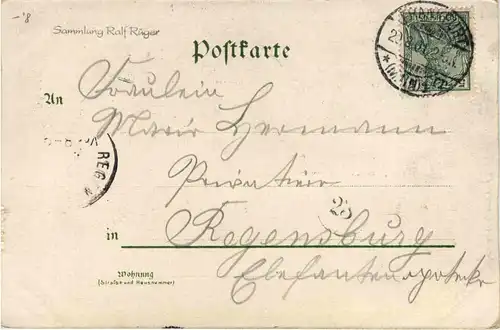 -'8
Sammlung Ralf Rüger
Postkarte
An Fräulein
Marie Hermann
Privatier
23
in Regensburg
Wohnung
(Straße und Hausnummer)
Elefantenapotheke
REG